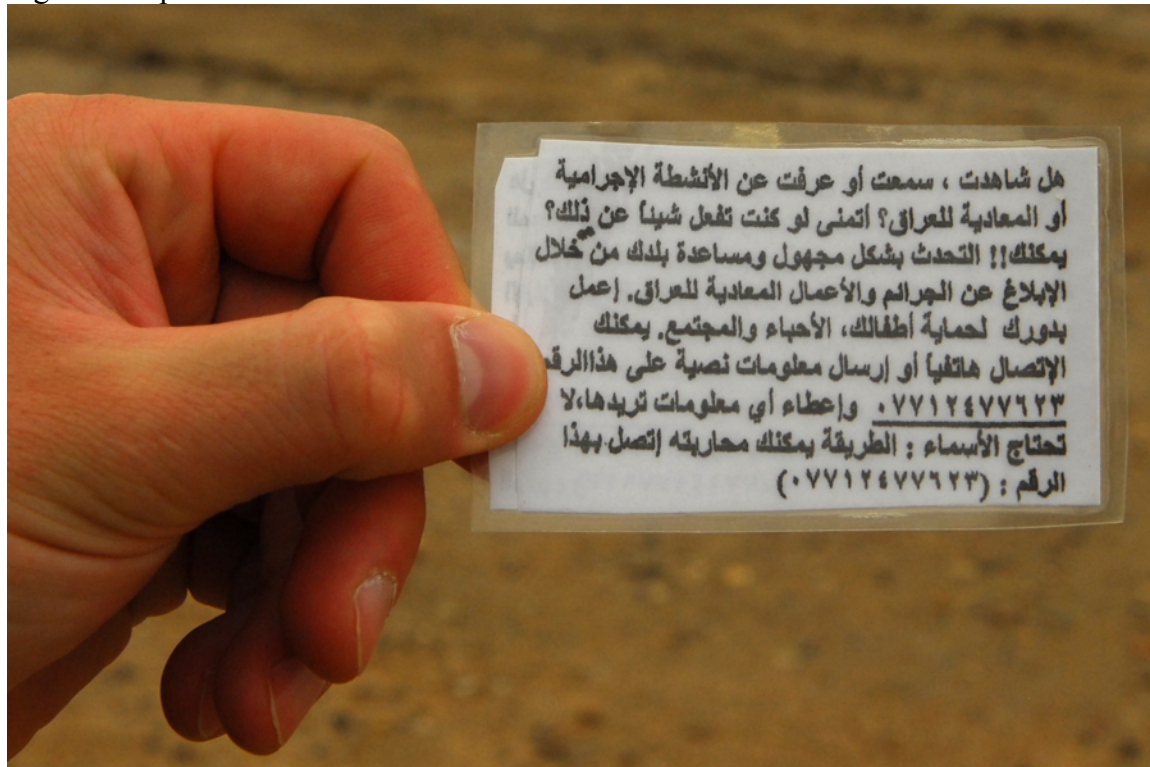 هل شاهدت ، سمعت أو عرفت عن الأنشطة الإجرامية
أو المعادية للعراق؟ أتمنى لو كنت تفعل شيئاً عن ذلك؟
يمكنك!! التحدث بشكل مجهول ومساعدة بلدك من خلال
الإبلاغ عن الجرائم والأعمال المعادية للعراق. إعمل
بدورك لحماية أطفالك، الأحباء والمجتمع. يمكنك
الإتصال هاتفياً أو إرسال معلومات نصية على هذاالرقم
٠٧٧١٢٤٧٧٦٢٣ وإعطاء أي معلومات تريدها،لا
تحتاج الأسماء : الطريقة يمكنك محاربته إتصل بهذا
الرقم : (٠٧٧١٢٤٧٧٦٢٣)